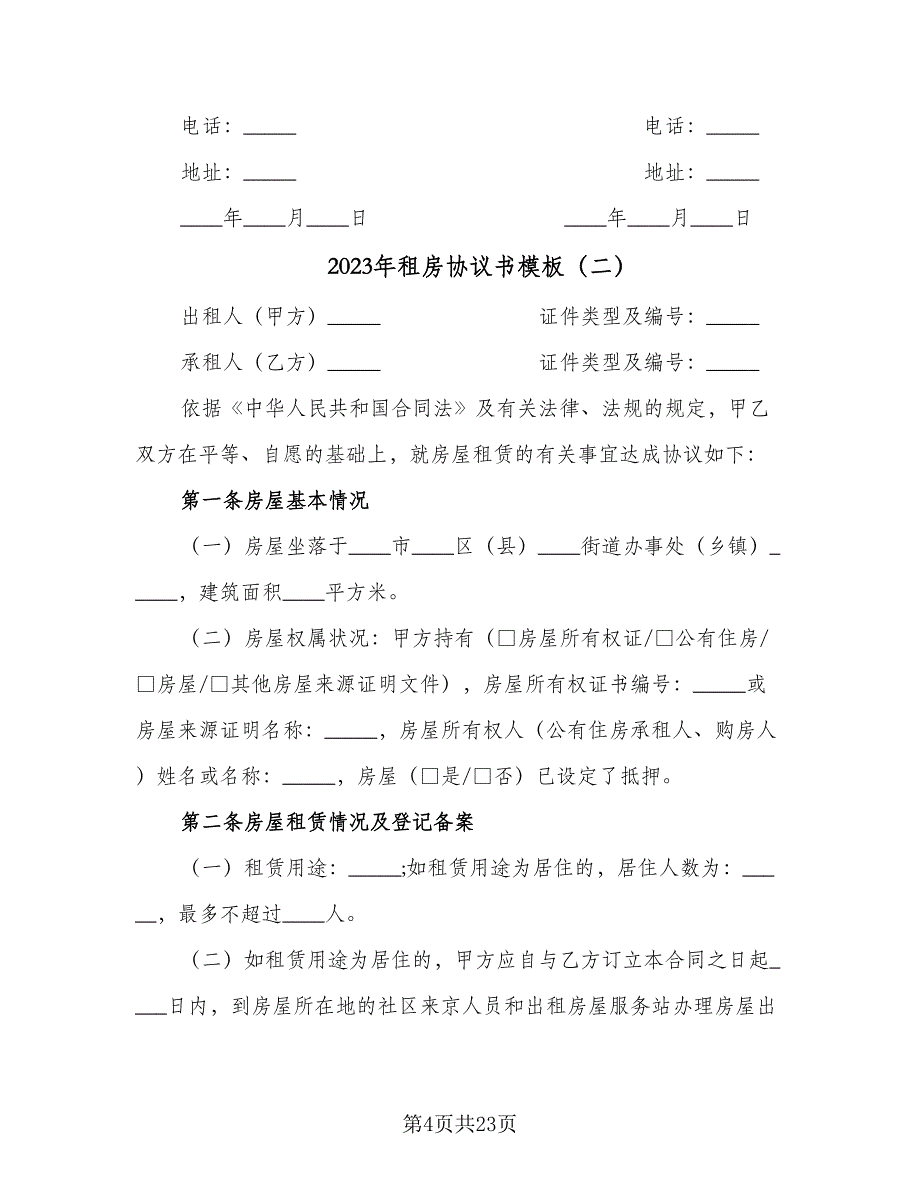 电话：_____ 电话：_____
地址：_____ 地址：_____
____年____月____日 ____年____月____日
2023年租房协议书模板（二）
出租人（甲方）_____ 证件类型及编号：_____
承租人（乙方）_____ 证件类型及编号：_____
依据《中华人民共和国合同法》及有关法律、法规的规定，甲乙
双方在平等、自愿的基础上，就房屋租赁的有关事宜达成协议如下：
第一条房屋基本情况
（一）房屋坐落于____市____区（县）____街道办事处（乡镇）_
____，建筑面积____平方米。
（二）房屋权属状况：甲方持有（□房屋所有权证/□公有住房/
□房屋/□其他房屋来源证明文件），房屋所有权证书编号：_____或
房屋来源证明名称：_____，房屋所有权人（公有住房承租人、购房人
）姓名或名称：_____，房屋（□是/□否）已设定了抵押。
第二条房屋租赁情况及登记备案
（一）租赁用途：_____;如租赁用途为居住的，居住人数为：___
__，最多不超过____人。
（二）如租赁用途为居住的，甲方应自与乙方订立本合同之日起_
___日内，到房屋所在地的社区来京人员和出租房屋服务站办理房屋出
第4页共23页